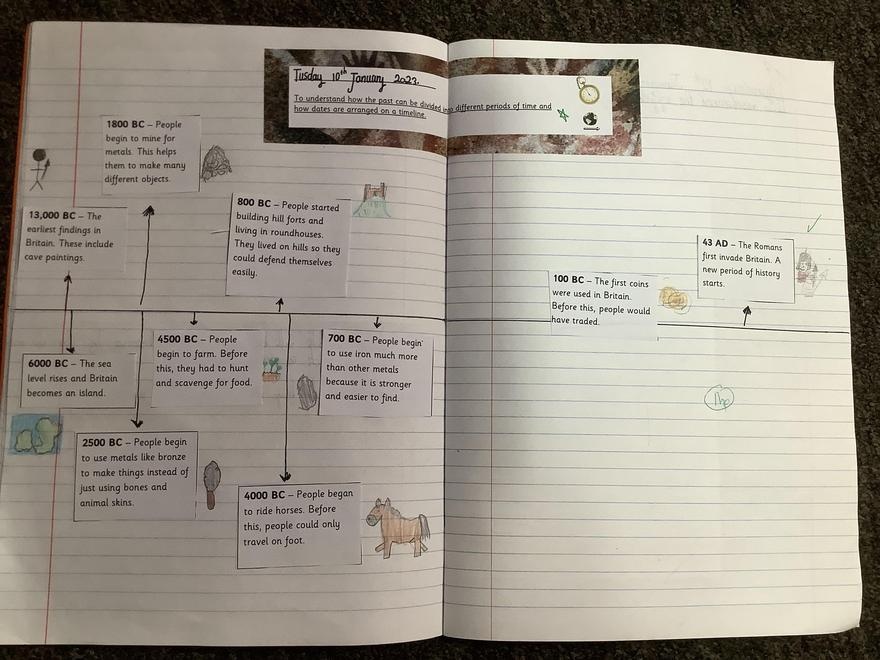 Tusday 10th January 2023.
To understand how the past can be divided into different periods of time and
how dates are arranged on a timeline.
1800 BC – People
begin to mine for
metals. This helps
them to make many
different objects.
13,000 BC – The
earliest findings in
Britain. These include
cave paintings.
800 BC – People started
building hill forts and
living in roundhouses.
They lived on hills so they
could defend themselves
easily.
6000 BC – The sea
level rises and Britain
becomes an island.
4500 BC – People
begin to farm. Before
this, they had to hunt
and scavenge for food.
700 BC – People begin
to use iron much more
than other metals
because it is stronger
and easier to find.
2500 BC – People begin
to use metals like bronze
to make things instead of
just using bones and
animal skins.
4000 BC – People began
to ride horses. Before
this, people could only
travel on foot.
100 BC – The first coins
were used in Britain.
Before this, people would
have traded.
43 AD – The Romans
first invade Britain. A
new period of history
starts.